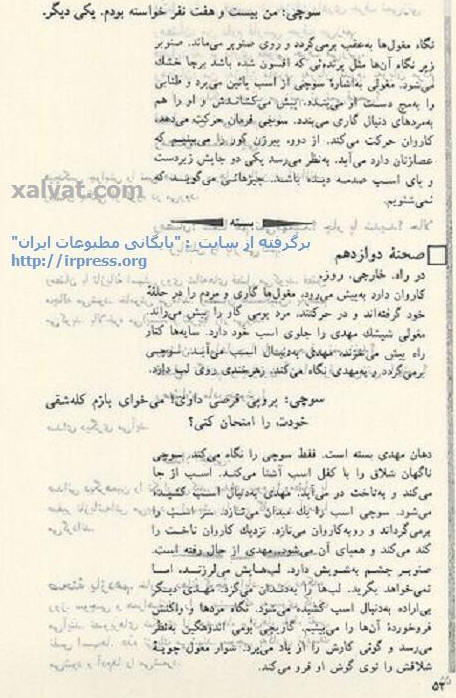 سوچی: من بیست و هفت نفر خواسته بودم. یکی دیگر.
نگاه مغول‌ها به‌عقب برمی‌گردد و روی صنوبر می‌ماند. صنوبر
زیر نگاه آن‌ها مثل پرنده‌ئی که افسون شده باشد برجا خشک
می‌شود. مغولی به‌اشارهٔ سوچی از اسب پائین می‌پرد و طنابی
را به‌مچ دست او می‌بندد. پیش می‌کشاندش و او را هم
به‌مردهای دنبال گاری می‌بندد. سوچی فرمان حرکت می‌دهد.
کاروان حرکت می‌کند. از دور، پیرزن کور را می‌بینیم که
عصازنان دارد می‌آید. به‌نظر می‌رسد یکی دو جایش زیردست
و پای اسب صدمه دیده باشد. چیزهائی می‌گوید که
نمی‌شنویم.
xalvat.com
بسته
برگرفته از سایت : "بایگانی مطبوعات ایران"
http://irpress.org
صحنهٔ دوازدهم
در راه. خارجی. روز
کاروان دارد به‌پیش می‌رود. مغول‌ها گاری و مردم را در حلقهٔ
خود گرفته‌اند و در حرکتند. مرد بومی گار را پیش می‌راند.
مغولی شیشک مهدی را جلوی اسب خود دارد. سایه‌ها کنار
راه پیش می‌خزند. مهدی به‌دنبال اسب می‌آید. سوچی
برمی‌گردد و به‌مهدی نگاه می‌کند. زهرخندی روی لب دارد.
سوچی: پروپی قرصی داری! می‌خوای بازم کله‌شقی
خودت را امتحان کنی؟
دهان مهدی بسته است. فقط سوچی را نگاه می‌کند. سوچی
ناگهان شلاق را با کفل اسب آشنا می‌کند. اسب از جا
می‌کند و به‌تاخت در می‌آید. مهدی به‌دنبال اسب کشیده
می‌شود. سوچی اسب را یک میدان می‌تازد. سر اسب را
برمی‌گرداند و روبه‌کاروان می‌تازد. نزدیک کاروان تاخت را
کند می‌کند و همپای آن می‌شود. مهدی از حال رفته است.
صنوبر چشم به‌شویش دارد. لب‌هایش می‌لرزند، اما
نمی‌خواهد بگرید. لب‌ها را به‌دندان می‌گزد. مهدی دیگر
بی‌اراده به‌دنبال اسب کشیده می‌شود. نگاه مردها و واکنش
فروخوردهٔ آن‌ها را می‌بینیم. گاریچی بومی اندوهگین به‌نظر
می‌رسد و گوئی کارش را از یاد می‌برد. سوار مغول چوبهٔ
شلاقش را توی گوش او فرو می‌کند.
۵۲